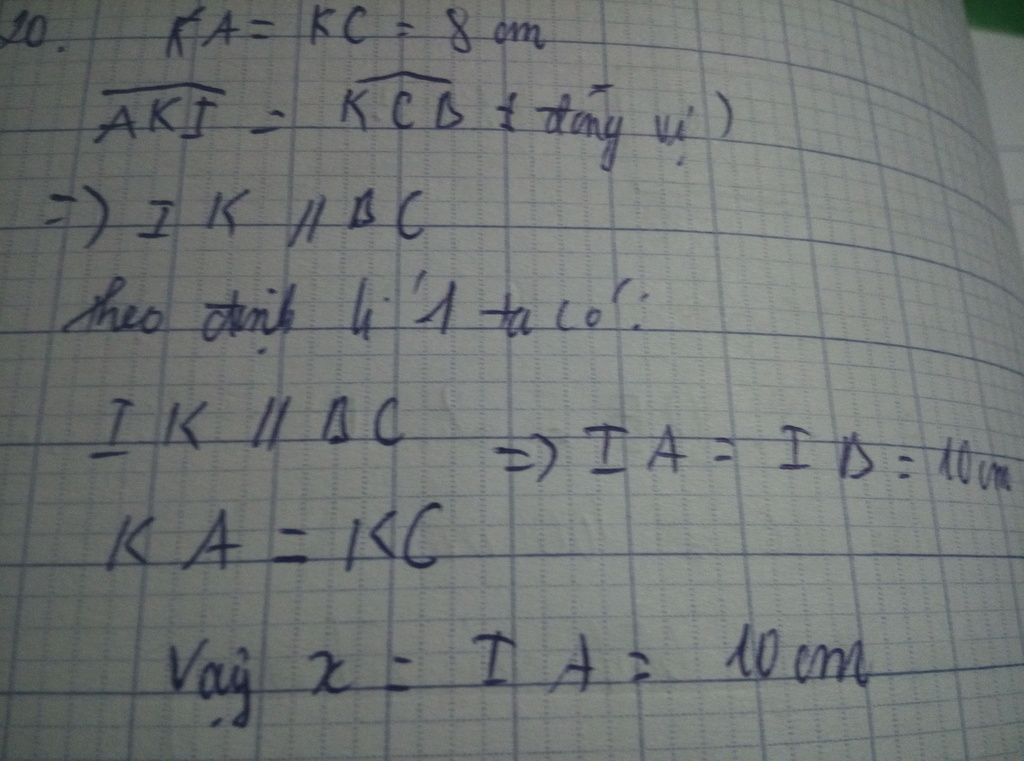 20. KA = KC = 8 cm
AKI = KCB (đồng vị)
=> IK // BC
theo định lí 1 ta có:
IK // BC
=> IA = IB = 10cm
KA = KC
Vậy x = IA = 10cm